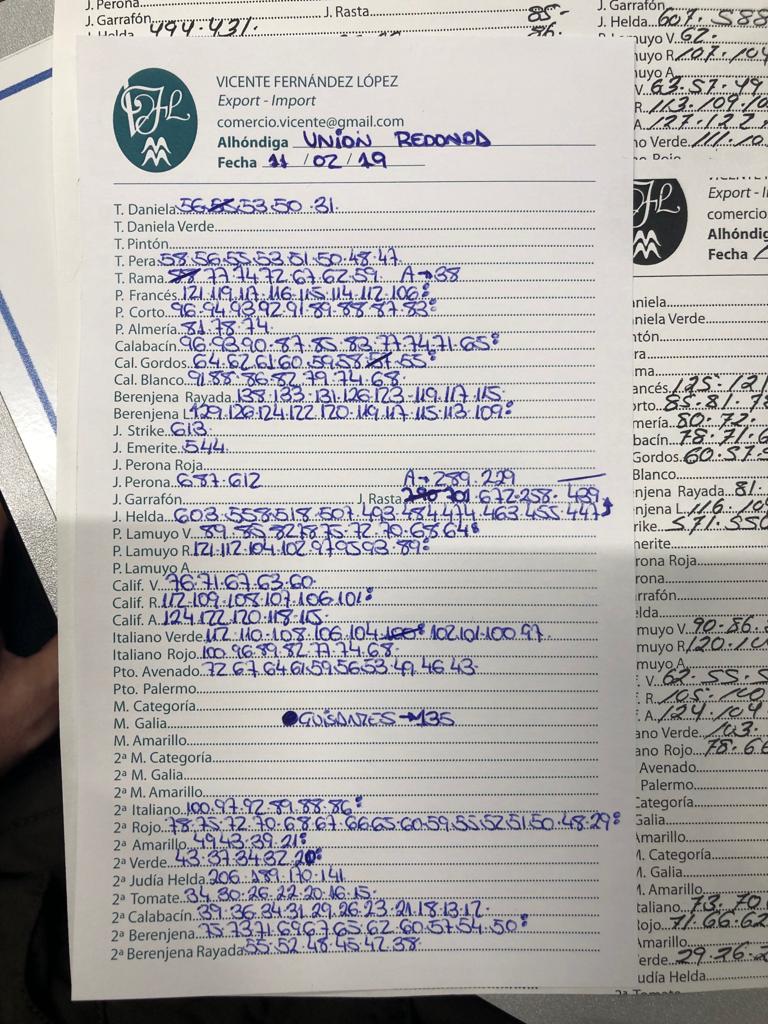 J. Perona
J. Garrafón J. Rasta 85-
J. Helda 494-431.
VICENTE FERNÁNDEZ LÓPEZ
Export - Import
comercio.vicente@gmail.com
Alhóndiga UNION REDONDA
Fecha 11 / 02 / 19
T. Daniela 56 53 50 31.
T. Daniela Verde
T. Pintón
T. Pera 58.56.55.53.51.50.48.47
T. Rama 77.74.72.67.62.59 A→38
P. Francés 121.119.117.116.115.114.112.106:
P. Corto 96.94.93.92.91.89.88.87.83:
P. Almería 81.78.74
Calabacín 96.93.90.87.85.83.77.74.71.65:
Cal. Gordos 64.62.61.60.59.58.57.55:
Cal. Blanco 91.88.86.82.79.74.68
Berenjena Rayada 138.133.131.126.123.119.117.115
Berenjena L 129.126.124.122.120.119.117.115.113.109:
J. Strike 613
J. Emerite 544
J. Perona Roja
J. Perona 687.612 A→289.229
J. Garrafón J. Rasta 672.258.439
J. Helda 603.558.518.507.493.484.474.463.455.447
P. Lamuyo V. 89.85.82.78.75.72.70.68.64:
P. Lamuyo R 121.112.104.102.97.95.93.89:
P. Lamuyo A
Calif. V. 76.71.67.63.60
Calif. R. 112.109.108.107.106.101:
Calif. A. 124.122.120.118.115
Italiano Verde 112.110.108.106.104 102.101.100.97
Italiano Rojo 100.96.89.82.77.74.68
Pto. Avenado 72.67.64.61.59.56.53.49.46.43
Pto. Palermo
M. Categoría
M. Galia GUISANTES→135
M. Amarillo
2ª M. Categoría
2ª M. Galia
2ª M. Amarillo
2ª Italiano 100.97.92.89.88.86:
2ª Rojo 78.75.72.70.68.67.66.65.60.59.55.52.51.50.48.29:
2ª Amarillo 49.43.39.21:
2ª Verde 43.37.34.32.20:
2ª Judía Helda 206.189.170.141
2ª Tomate 34.30.26.22.20.16.15
2ª Calabacín 39.36.34.31.29.26.23.21.18.13.12
2ª Berenjena 75.73.71.69.67.65.62.60.57.54.50:
2ª Berenjena Rayada 55.52.48.45.42.38
J. Garrafón
J. Helda 607. 588
muyo V. 62.
muyo R 107.104
muyo A
V. 63.57.49
R. 113.109.10
A. 127.122.
no Verde 111.10
Export - Im
comercio
Alhóndig
Fecha
aniela
aniela Verde
ntón
ra
ma
ancés 125.121
orto 85.81.78
mería 80.72.
bacín 78.71.6
Gordos 60.57.5
Blanco
enjena Rayada 81.
enjena L 116.10
rike 571.550
merite
rona Roja
rona
arrafón
elda
muyo V. 90.86.8
muyo R 120.10
muyo A
V. 62.55.5
R. 105.100
A. 124.104
ano Verde 103.
ano Rojo 78.66
Avenado
Palermo
Categoría
Galia
Amarillo
M. Categoría
M. Galia
M. Amarillo
taliano 73.70
Rojo 71.66.62
Amarillo
erde 29.26.2
udía Helda
2ª Tomate